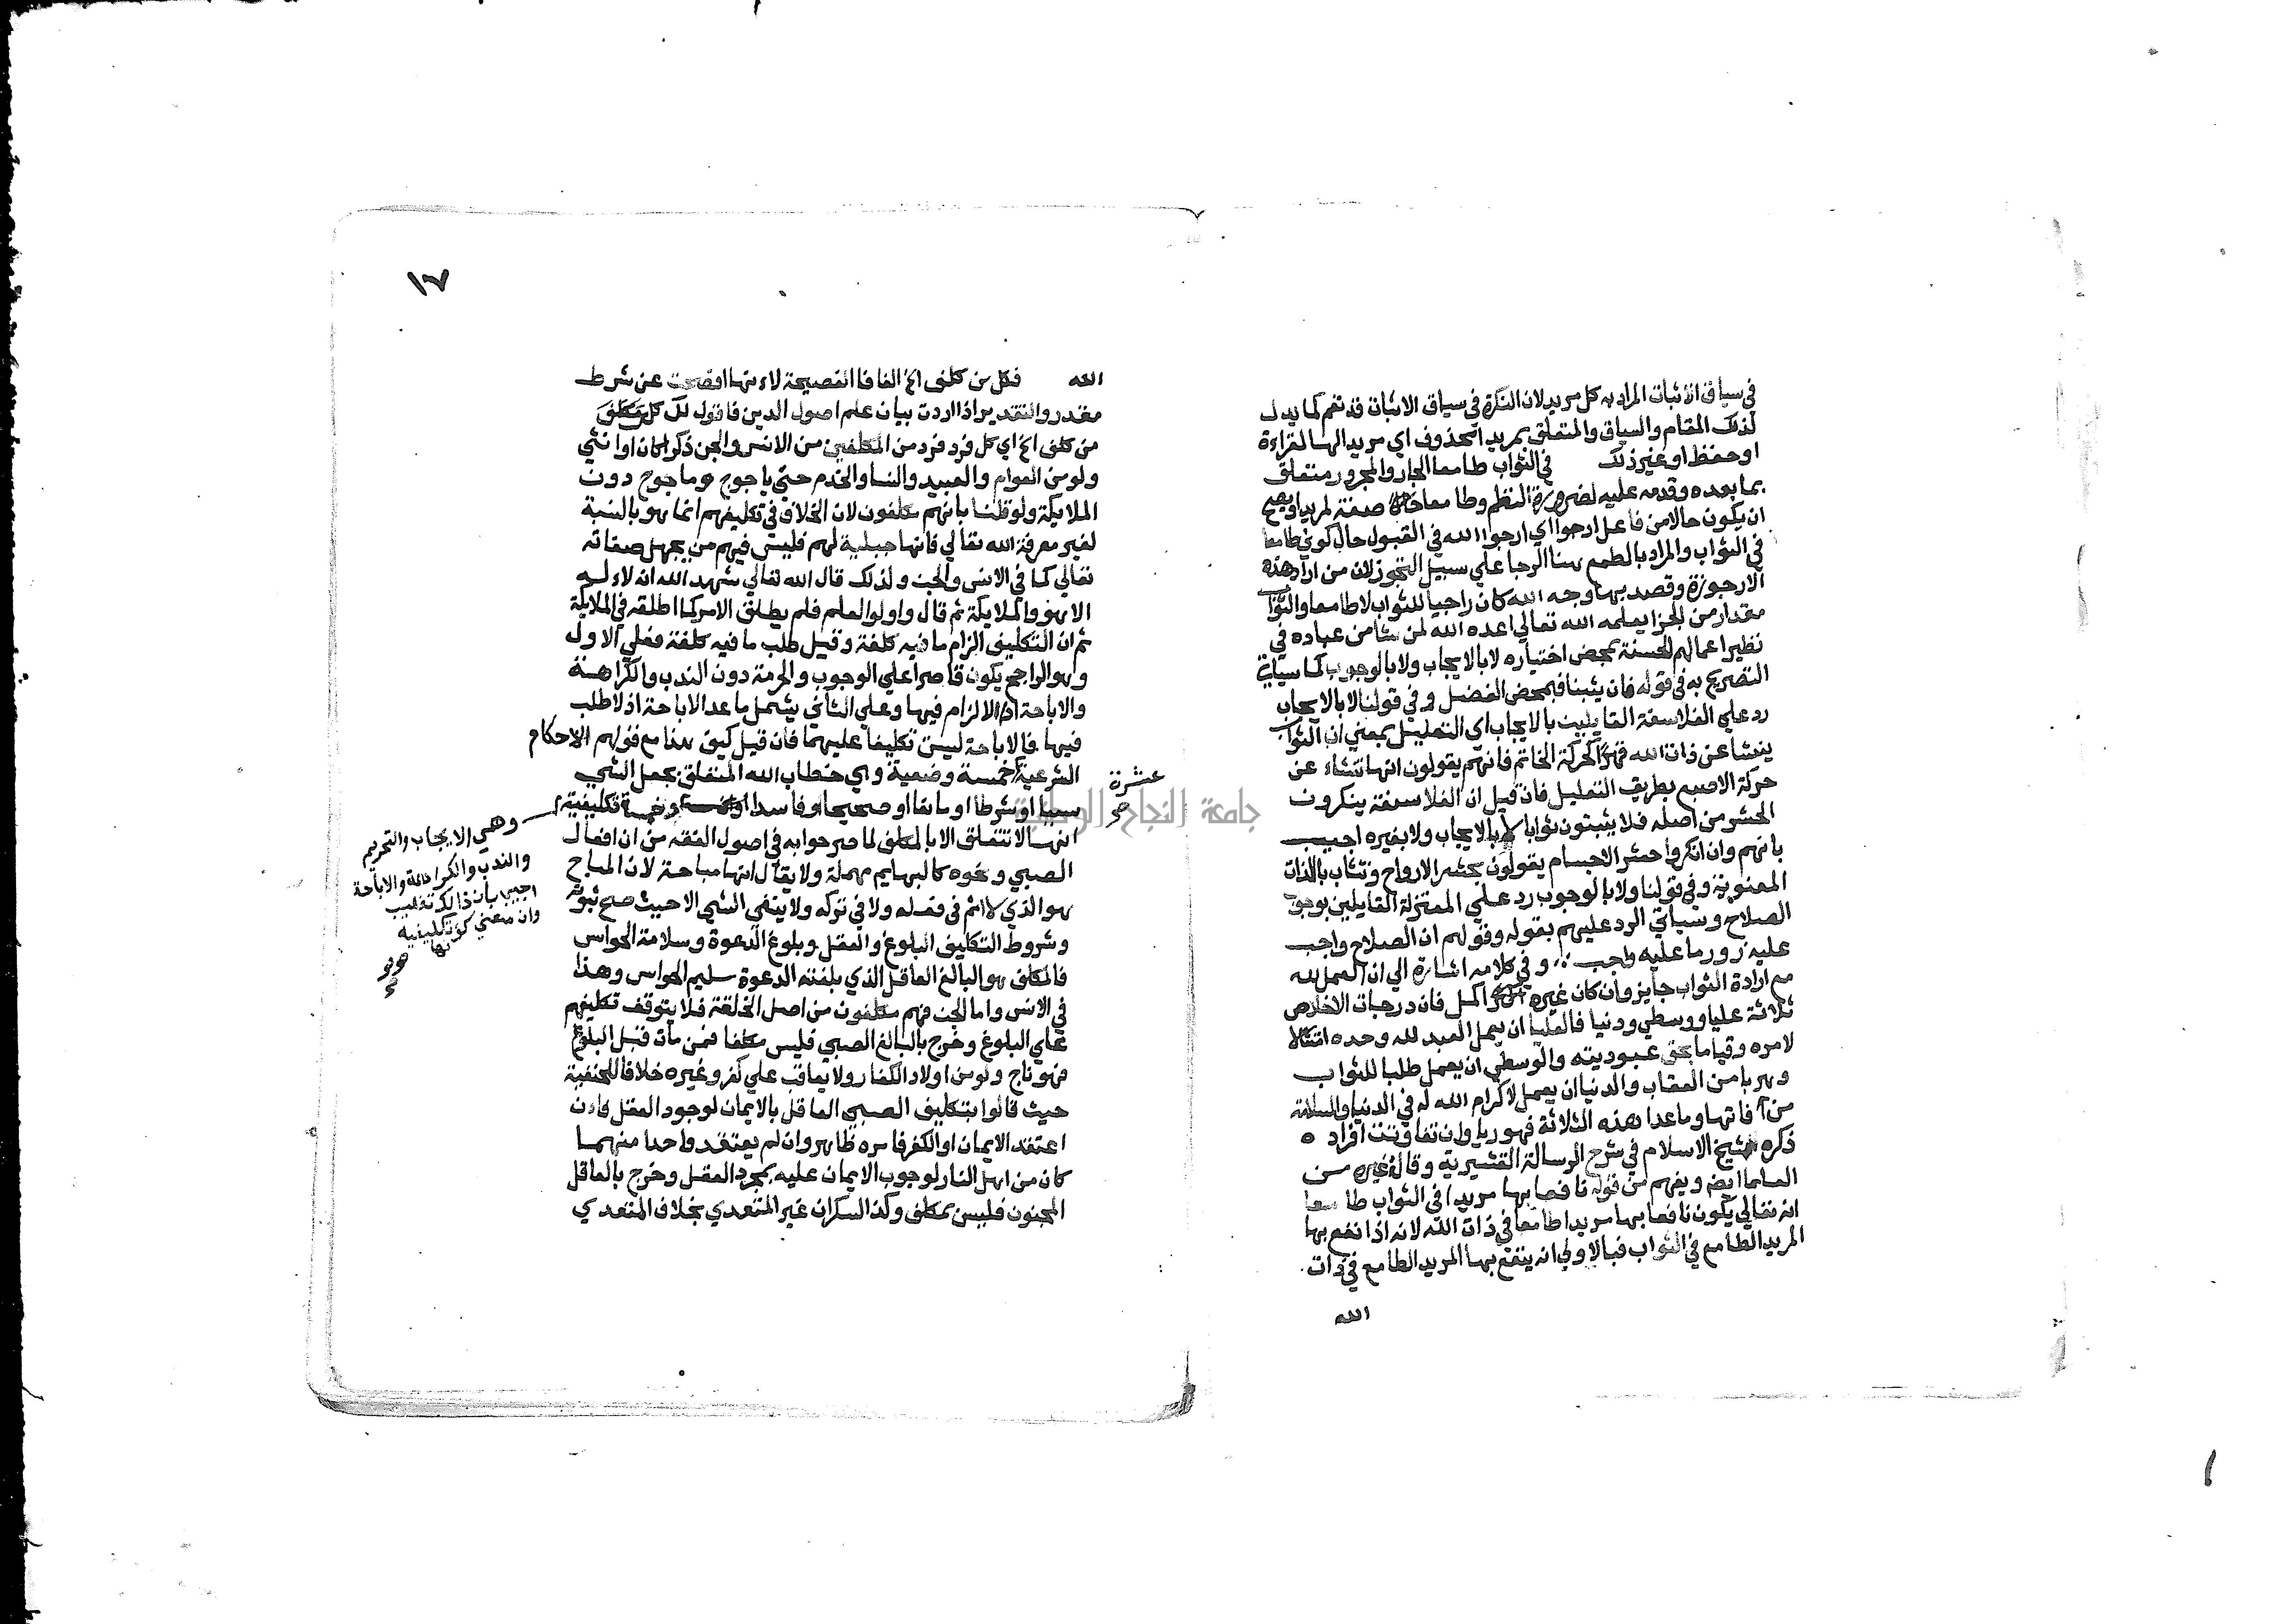 في سياق الاثبات المراد به كل مريد لان النكرة في سياق الاثبات قد تعم كما يدل
لذلك المقام والسياق والمتعلق بمريد محذوف اي مريد الها لقراءة
او حفظ او غير ذلك في الثواب طامعا الجار والمجرور متعلق
بما بعده وقدمه عليه لضرورة النظم وطامعا صفة لمريدا ويصح
ان يكون حالا من فاعل ارجوا اي ارجوا الله في القبول حال كوني طامعا
في الثواب والمراد بالطمع هنا الرجا علي سبيل التجوز لان من اراد هذه
الارجوزة وقصد بها وجه الله كان راجيا للثواب لا طامعا والثواب
مقدار من الجزا يعلمه الله تعالي اعده الله لمن شا من عباده في
نظير اعمالهم الحسنة بمحض اختياره لا بالايجاب ولا بالوجوب كما سياتي
التصريح به في قوله فان يثبنا فبمحض الفضل وفي قولنا لا بالايجاب
رد علي الفلاسفة القايلين بالايجاب اي التعليل بمعني ان الثواب
ينشا عن ذات الله قهرا كحركة الخاتم فانهم يقولون انها تنشاء عن
حركة الاصبع بطريق التعليل فان قيل ان الفلاسفة ينكرون
الحشر من اصله فلا يثبتون ثوابا لا بالايجاب ولا بغيره اجيب
بانهم وان انكروا حشر الاجسام يقولون بحشر الارواح وتثاب بالذات
المعنوية وفي قولنا ولا بالوجوب رد علي المعتزلة القايلين بوجوب
الصلاح وسياتي الرد عليهم بقوله وقولهم ان الصلاح واجب
عليه زور ما عليه واجب وفي كلامه اشارة الي ان العمل لله
مع ارادة الثواب جايز وان كان غيره اكمل فان درجات الاخلاص
ثلاثة عليا ووسطي ودنيا فالعليا ان يعمل العبد لله وحده امتثالا
لامره وقياما بحق عبوديته والوسطي ان يعمل طلبا للثواب
وهربا من العقاب والدنيا ان يعمل لاكرام الله له في الدنيا والسلامة
من افاتها وما عدا هذه الثلاثة فهو ريا وان تفاوتت افراده
ذكره شيخ الاسلام في شرح الرسالة القشيرية وقاله غيره من
العلما ايضا ويفهم من قوله نافعا بها مريدا في الثواب طامعا
انه تعالي يكون نافعا بها مريدا طامعا في ذات الله لانه اذا نفع بها
المريد الطامع في الثواب فبالاولي انه ينفع بها المريد الطامع في ذات
الله
١٧
الله فكل من كلف الخ الفا فا الفصيحة لاءنها افصحت عن شرط
مقدر والتقدير اذا اردت بيان علم اصول الدين فاقول لك كل
من كلف الخ اي كل فرد فرد من المكلفين من الانس والجن ذكرا كان او انثي
ولو من العوام والعبيد والنسا والخدم حتي ياجوج وماجوج دون
الملايكة ولو قلنا بانهم مكلفون لان الخلاف في تكليفهم انما هو بالنسبة
لغير معرفة الله تعالي فانها جبلية لهم فليس فيهم من يجهل صفاته
تعالي كما في الانس والجن ولذلك قال الله تعالي شهد الله انه لا اله
الا هو والملايكة ثم قال واولوا العلم فلم يطلق الامر كما اطلقه في الملايكة
ثم ان التكليف الزام ما فيه كلفة وقيل طلب ما فيه كلفة فعلي الاول
وهو الراجح يكون قاصرا علي الوجوب والحرمة دون الندب والكراهة
والاباحة اذ لا الزام فيها وعلي الثاني يشمل ما عدا الاباحة اذ لا طلب
فيها فالاباحة ليست تكليفا عليهما فان قيل كيف هذا مع قولهم الاحكام
الشرعية خمسة وضعية وهي خطاب الله المتعلق بجعل الشي
عشرة
صح
سببا او شرطا او مانعا او صحيحا او فاسدا وخمسة تكليفية
وهي الايجاب والتحريم
والندب والكراهة والاباحة
اجيب بان ذالك تغليب
وان معني كونها تكليفية
انها لا تتعلق الا بالمكلف لما صرحوا به في اصول الفقه من ان افعال
الصبي ونحوه كالبهايم مهملة ولا يقال انها مباحة لان المباح
هو الذي لا اثم في فعله ولا في تركه ولا ينفي الشي الا حيث صح ثبوته
وشروط التكليف البلوغ والعقل وبلوغ الدعوة وسلامة الحواس
فالمكلف هو البالغ العاقل الذي بلغته الدعوة سليم الحواس وهذا
في الانس واما الجن فهم مكلفون من اصل الخلقة فلا يتوقف تكليفهم
علي البلوغ وخرج بالبالغ الصبي فليس مكلفا فمن مات قبل البلوغ
فهو ناج ولو من اولاد الكفار ولا يعاقب علي كفر وغيره خلافا للحنفية
حيث قالوا بتكليف الصبي العاقل بالايمان لوجود العقل فان
اعتقد الايمان او الكفر فامره ظاهر وان لم يعتقد واحدا منهما
كان من اهل النار لوجوب الايمان عليه بمجرد العقل وخرج بالعاقل
المجنون فليس بمكلف وكذا السكران غير المتعدي بخلاف المتعدي
جامعة النجاح الوطنية